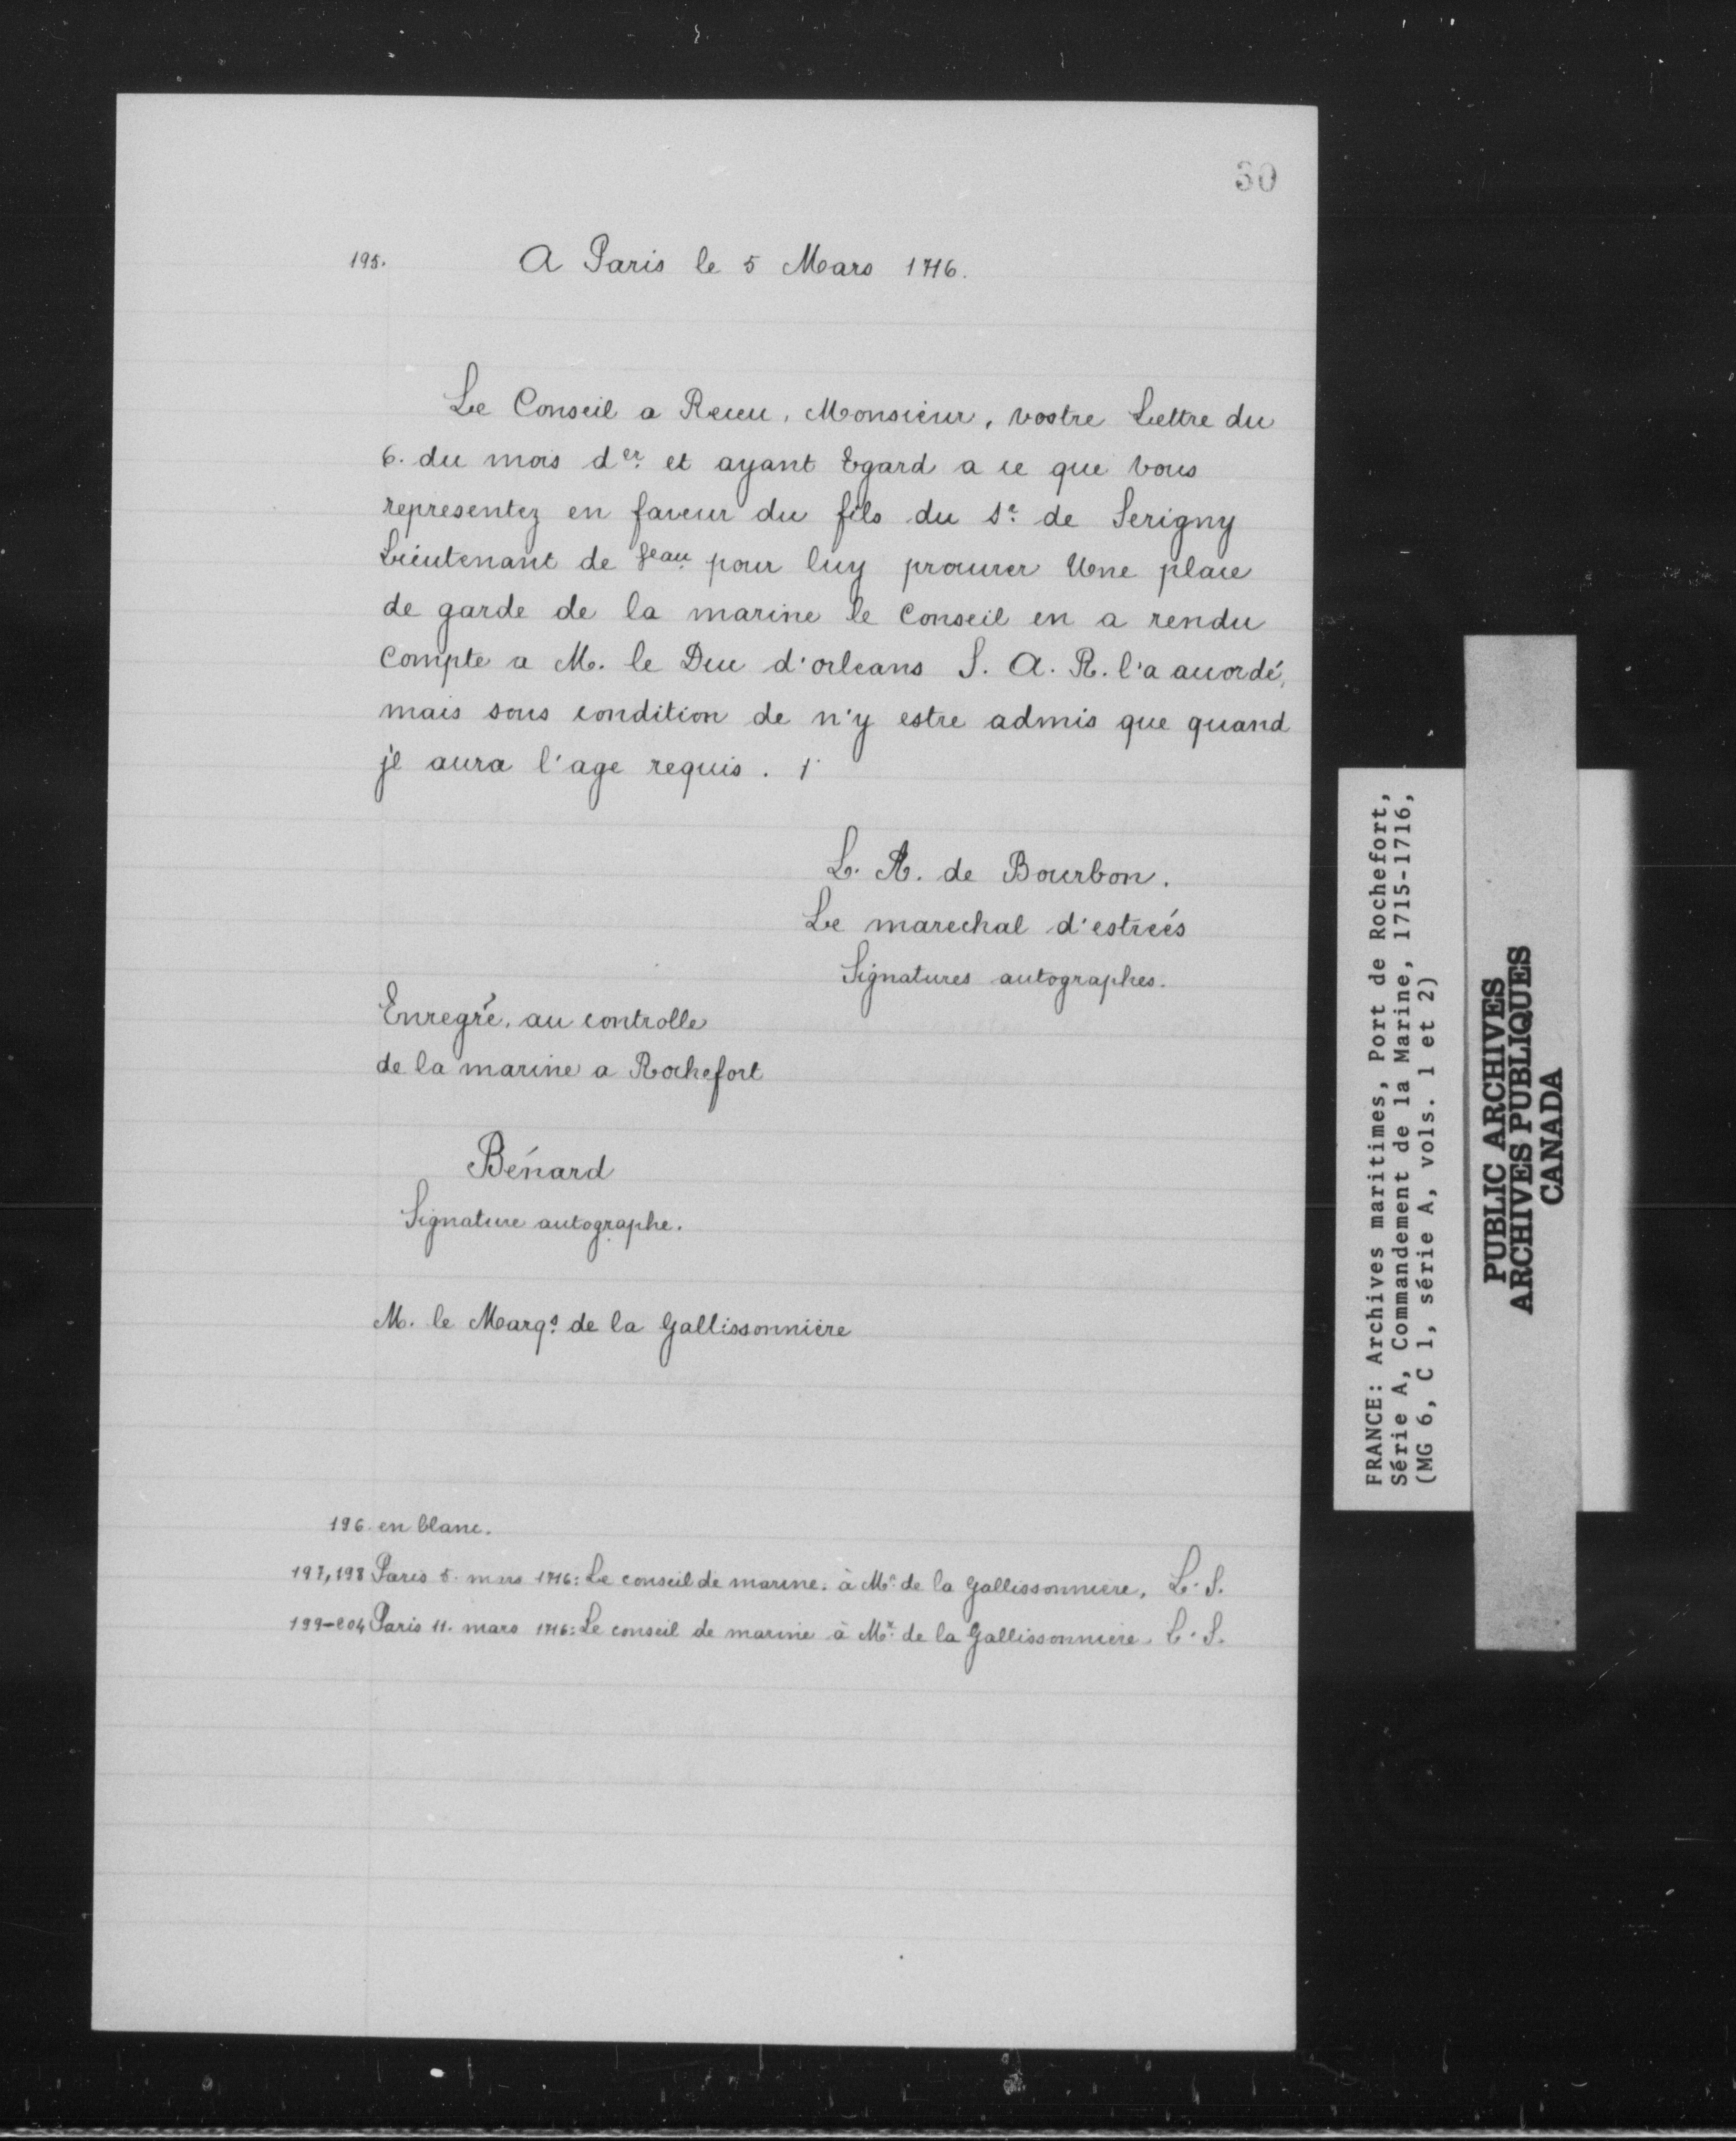 30
195. A Paris le 5 Mars 1716.
Le Conseil a Receu, Monsieur, vostre Lettre du
6. du mois der. et ayant Egard a ce que vous
representez en faveur du fils du Sr. de Serigny
Lieutenant de Veau. pour luy procurer Une place
de garde de la marine le Conseil en a rendu
Compte a M. le Duc d'orleans S. A. R. l'a accordé,
mais sous condition de n'y estre admis que quand
jl aura l'age requis.
L. A. de Bourbon.
Le marechal d'estreés
Signatures autographes.
Enregré. au controlle
de la marine a Rochefort
Bénard
Signature autographe.
M. le Marqs. de la Gallissonniere
196. en blanc.
197, 198 Paris 5. mars 1716: Le conseil de marine. à Mr. de la Gallissonniere, L. S.
199-204 Paris 11. mars 1716: Le conseil de marine à Mr. de la Gallissonniere. L. S.
FRANCE: Archives maritimes, Port de Rochefort,
Série A, Commandement de la Marine, 1715-1716,
(MG 6, C 1, série A, vols. 1 et 2)
PUBLIC ARCHIVES
ARCHIVES PUBLIQUES
CANADA